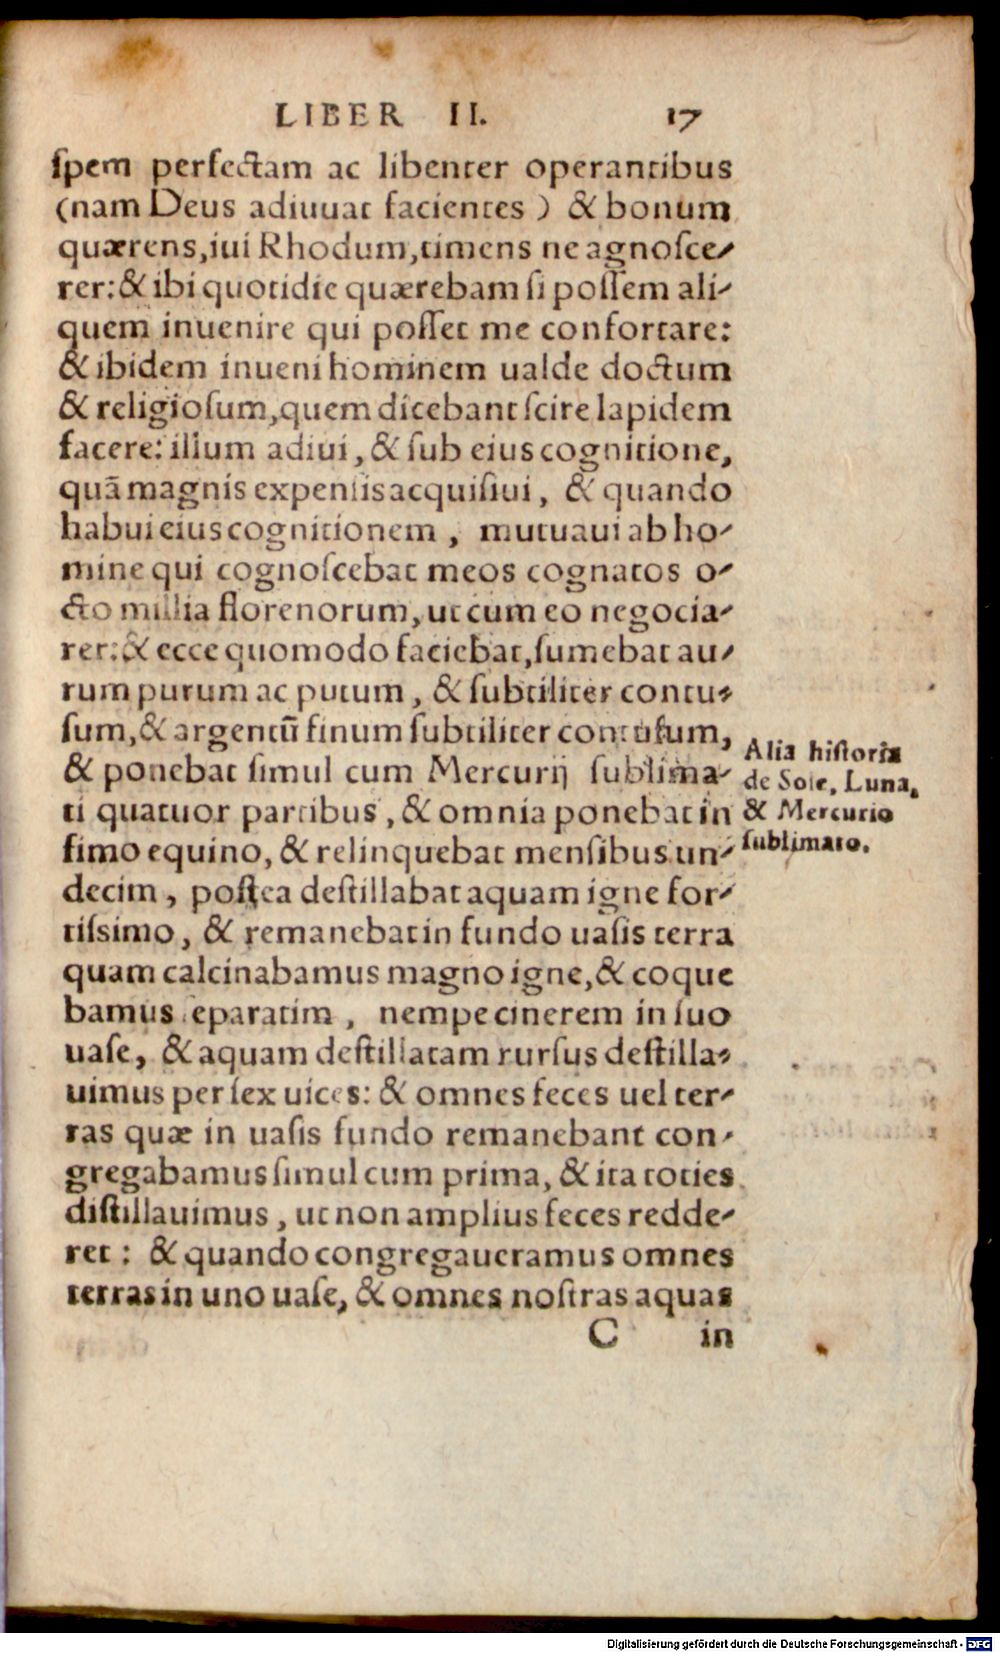 LIBER II. 17
ſpem perfectam ac libenter operantibus
(nam Deus adiuuat facientes) & bonum
quærens, iui Rhodum, timens ne agnoſce-
rer: & ibi quotidie quærebam ſi poſſem ali-
quem inuenire qui poſſet me confortare:
& ibidem inueni hominem ualde doctum
& religioſum, quem dicebant ſcire lapidem
facere: illum adiui, & ſub eius cognitione,
quã magnis expenſis acquiſiui, & quando
habui eius cognitionem, mutuaui ab ho-
mine qui cognoſcebat meos cognatos o-
cto millia florenorum, ut cum eo negocia-
rer: & ecce quomodo faciebat, ſumebat au-
rum purum ac putum, & ſubtiliter contu-
ſum, & argentũ finum ſubtiliter contuſum,
& ponebat ſimul cum Mercurij ſublima-
ti quatuor partibus, & omnia ponebat in
fimo equino, & relinquebat menſibus un-
decim, poſtea deſtillabat aquam igne for-
tiſsimo, & remanebat in fundo uaſis terra
quam calcinabamus magno igne, & coque
bamus ſeparatim, nempe cinerem in ſuo
uaſe, & aquam deſtillatam rurſus deſtilla-
uimus per ſex uices: & omnes feces uel ter-
ras quæ in uaſis fundo remanebant con-
gregabamus ſimul cum prima, & ita toties
diſtillauimus, ut non amplius feces redde-
ret: & quando congregaueramus omnes
terras in uno uaſe, & omnes noſtras aquas
C in
Alia hiſtoria
de Sole, Luna,
& Mercurio
ſublimato.
Digitalisierung gefördert durch die Deutsche Forschungsgemeinschaft - DFG